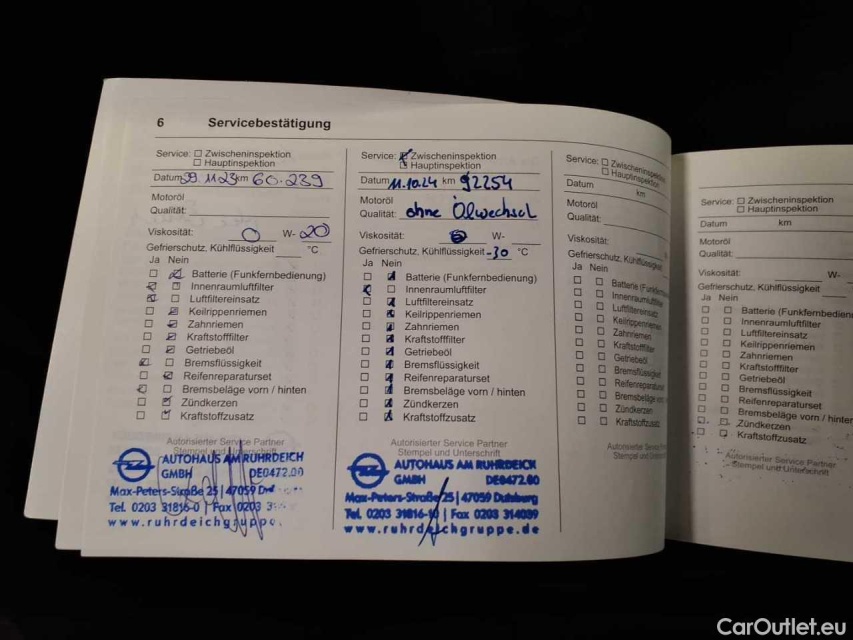 6 Servicebestätigung
Service: Zwischeninspektion
Hauptinspektion
Datum 11 23 km 60.239
Motoröl
Qualität:
Viskosität: 0 W- 20
Gefrierschutz, Kühlflüssigkeit °C
Ja Nein
Batterie (Funkfernbedienung)
Innenraumluftfilter
Luftfiltereinsatz
Keilrippenriemen
Zahnriemen
Kraftstofffilter
Getriebeöl
Bremsflüssigkeit
Reifenreparaturset
Bremsbeläge vorn / hinten
Zündkerzen
Kraftstoffzusatz
Autorisierter Service Partner
Stempel und Unterschrift
AUTOHAUS AM RUHRDEICH
GMBH DE0472.00
Max-Peters-Straße 25 | 47059
Tel. 0203 31816-0 | Fax 0203
www.ruhrdeichgruppe.
Service: Zwischeninspektion
Hauptinspektion
Datum 11.10.24 km 92254
Motoröl
Qualität: ohne Ölwechsel
Viskosität: W-
Gefrierschutz, Kühlflüssigkeit -30 °C
Ja Nein
Batterie (Funkfernbedienung)
Innenraumluftfilter
Luftfiltereinsatz
Keilrippenriemen
Zahnriemen
Kraftstofffilter
Getriebeöl
Bremsflüssigkeit
Reifenreparaturset
Bremsbeläge vorn / hinten
Zündkerzen
Kraftstoffzusatz
Autorisierter Service Partner
Stempel und Unterschrift
AUTOHAUS AM RUHRDEICH
GMBH DE0472.00
Max-Peters-Straße 25 | 47059 Duisburg
Tel. 0203 31816- | Fax 0203 314039
www.ruhrdeichgruppe.de
Service: Zwischeninspektion
Hauptinspektion
Datum km
Motoröl
Qualität:
Viskosität:
Gefrierschutz, Kühlflüssigkeit
Ja Nein
Batterie (Funkfe
Innenraumluftfi
Luftfiltereinsatz
Keilrippenriemen
Zahnriemen
Kraftstofffilter
Getriebeöl
Bremsflüssigkei
Reifenreparatur
Bremsbeläge
Zündkerzen
Kraftstoffzusatz
Autorisierter Se
Stempel und
Service: Zwischeninspektion
Hauptinspektion
Datum km
Motoröl
Qualität:
Viskosität: W-
Gefrierschutz, Kühlflüssigkeit
Ja Nein
Batterie (Funkfernbedien
Innenraumluftfilter
Luftfiltereinsatz
Keilrippenriemen
Zahnriemen
Kraftstofffilter
Getriebeöl
Bremsflüssigkeit
Reifenreparaturset
Bremsbeläge vorn / hinten
Zündkerzen
Kraftstoffzusatz
Autorisierter Service Partner
Stempel und Unterschrift
CarOutlet.eu